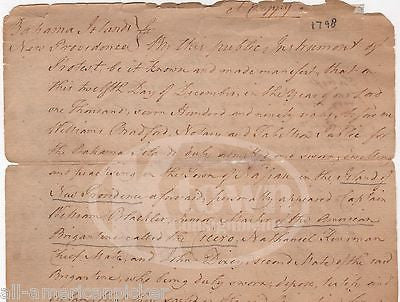 A Coppy
1798
Bahama Islands
New Providence } By this public Instrument of
Protest be it Known and made manifest, that on
this twelfth Day of December in the Year of our Lord
one Thousand seven Hundred and ninety eight, before me
William Bradford, Notary and Tabellion Public for
the Bahama Isles duly admitted and sworn, dwelling
and practising in the Town of Nassau in the Island of
New Providence aforesaid, personally appeared Captain
William master of the American
Brigantine called the Nathaniel
Chief Mate, and John second Mate of the said
Brigantine who being duly sworn, depose, testify and
all-americanpicker